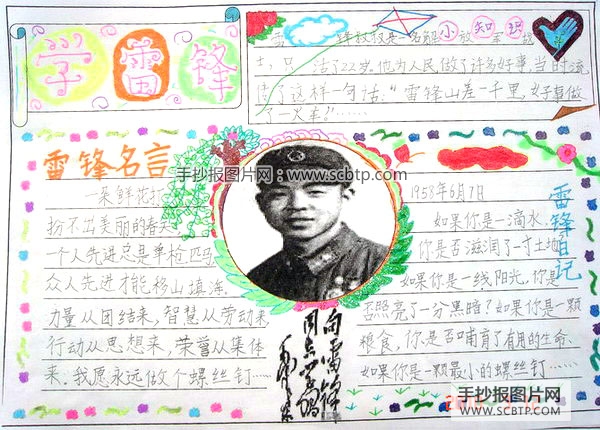 学雷锋
小知识
雷锋叔叔是一名解放军战
士,只活了22岁。他为人民做了许多好事,当时流
传了这样一句话:“雷锋出差一千里,好事做
了一火车”……
雷锋名言
一朵鲜花打
扮不出美丽的春天
一个人先进总是单枪匹马
众人先进才能移山填海
力量从团结来,智慧从劳动来
行动从思想来,荣誉从集体
来.我愿永远做个螺丝钉……
手抄报图片网
www.scbtp.com
向雷锋
同志学习
毛泽东
雷锋日记
1958年6月7日
如果你是一滴水.
你是否滋润了一寸土地
如果你是一线阳光,你是
否照亮了一分黑暗?如果你是一颗
粮食,你是否哺育了有用的生命.
如果你是一颗最小的螺丝钉……
手抄报图片网
WWW.SCBTP.COM